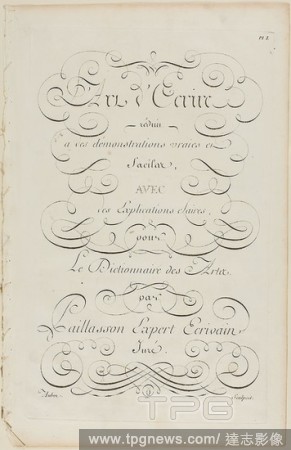 Pl. I.
Art d'Ecrire
réduit
à des démonstrations vraies et
faciles,
AVEC
des Explications claires,
pour
Le Dictionnaire des Arts.
par
Paillasson Expert Ecrivain
Juré.
Aubin Sculpsit.
TPG
www.tpgnews.com/ 達志影像